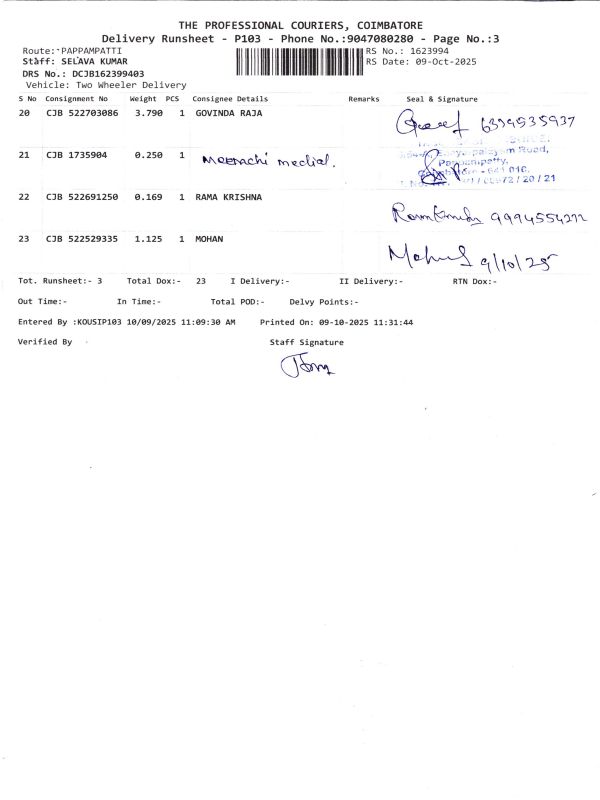 THE PROFESSIONAL COURIERS, COIMBATORE
Delivery Runsheet - P103 - Phone No.:9047080280 - Page No.:3
Route: PAPPAMPATTI RS No.: 1623994
Staff: SELAVA KUMAR RS Date: 09-Oct-2025
DRS No.: DCJB162399403
Vehicle: Two Wheeler Delivery
S No Consignment No Weight PCS Consignee Details Remarks Seal & Signature
20 CJB 522703086 3.790 1 GOVINDA RAJA 6379535937
21 CJB 1735904 0.250 1 Meenachi medial.
Road,
Pappampatty,
641 016.
/ 20 / 21
22 CJB 522691250 0.169 1 RAMA KRISHNA
23 CJB 522529335 1.125 1 MOHAN 9/10/25
Tot. Runsheet:- 3 Total Dox:- 23 I Delivery:- II Delivery:- RTN Dox:-
Out Time:- In Time:- Total POD:- Delvy Points:-
Entered By :KOUSIP103 10/09/2025 11:09:30 AM Printed On: 09-10-2025 11:31:44
Verified By Staff Signature